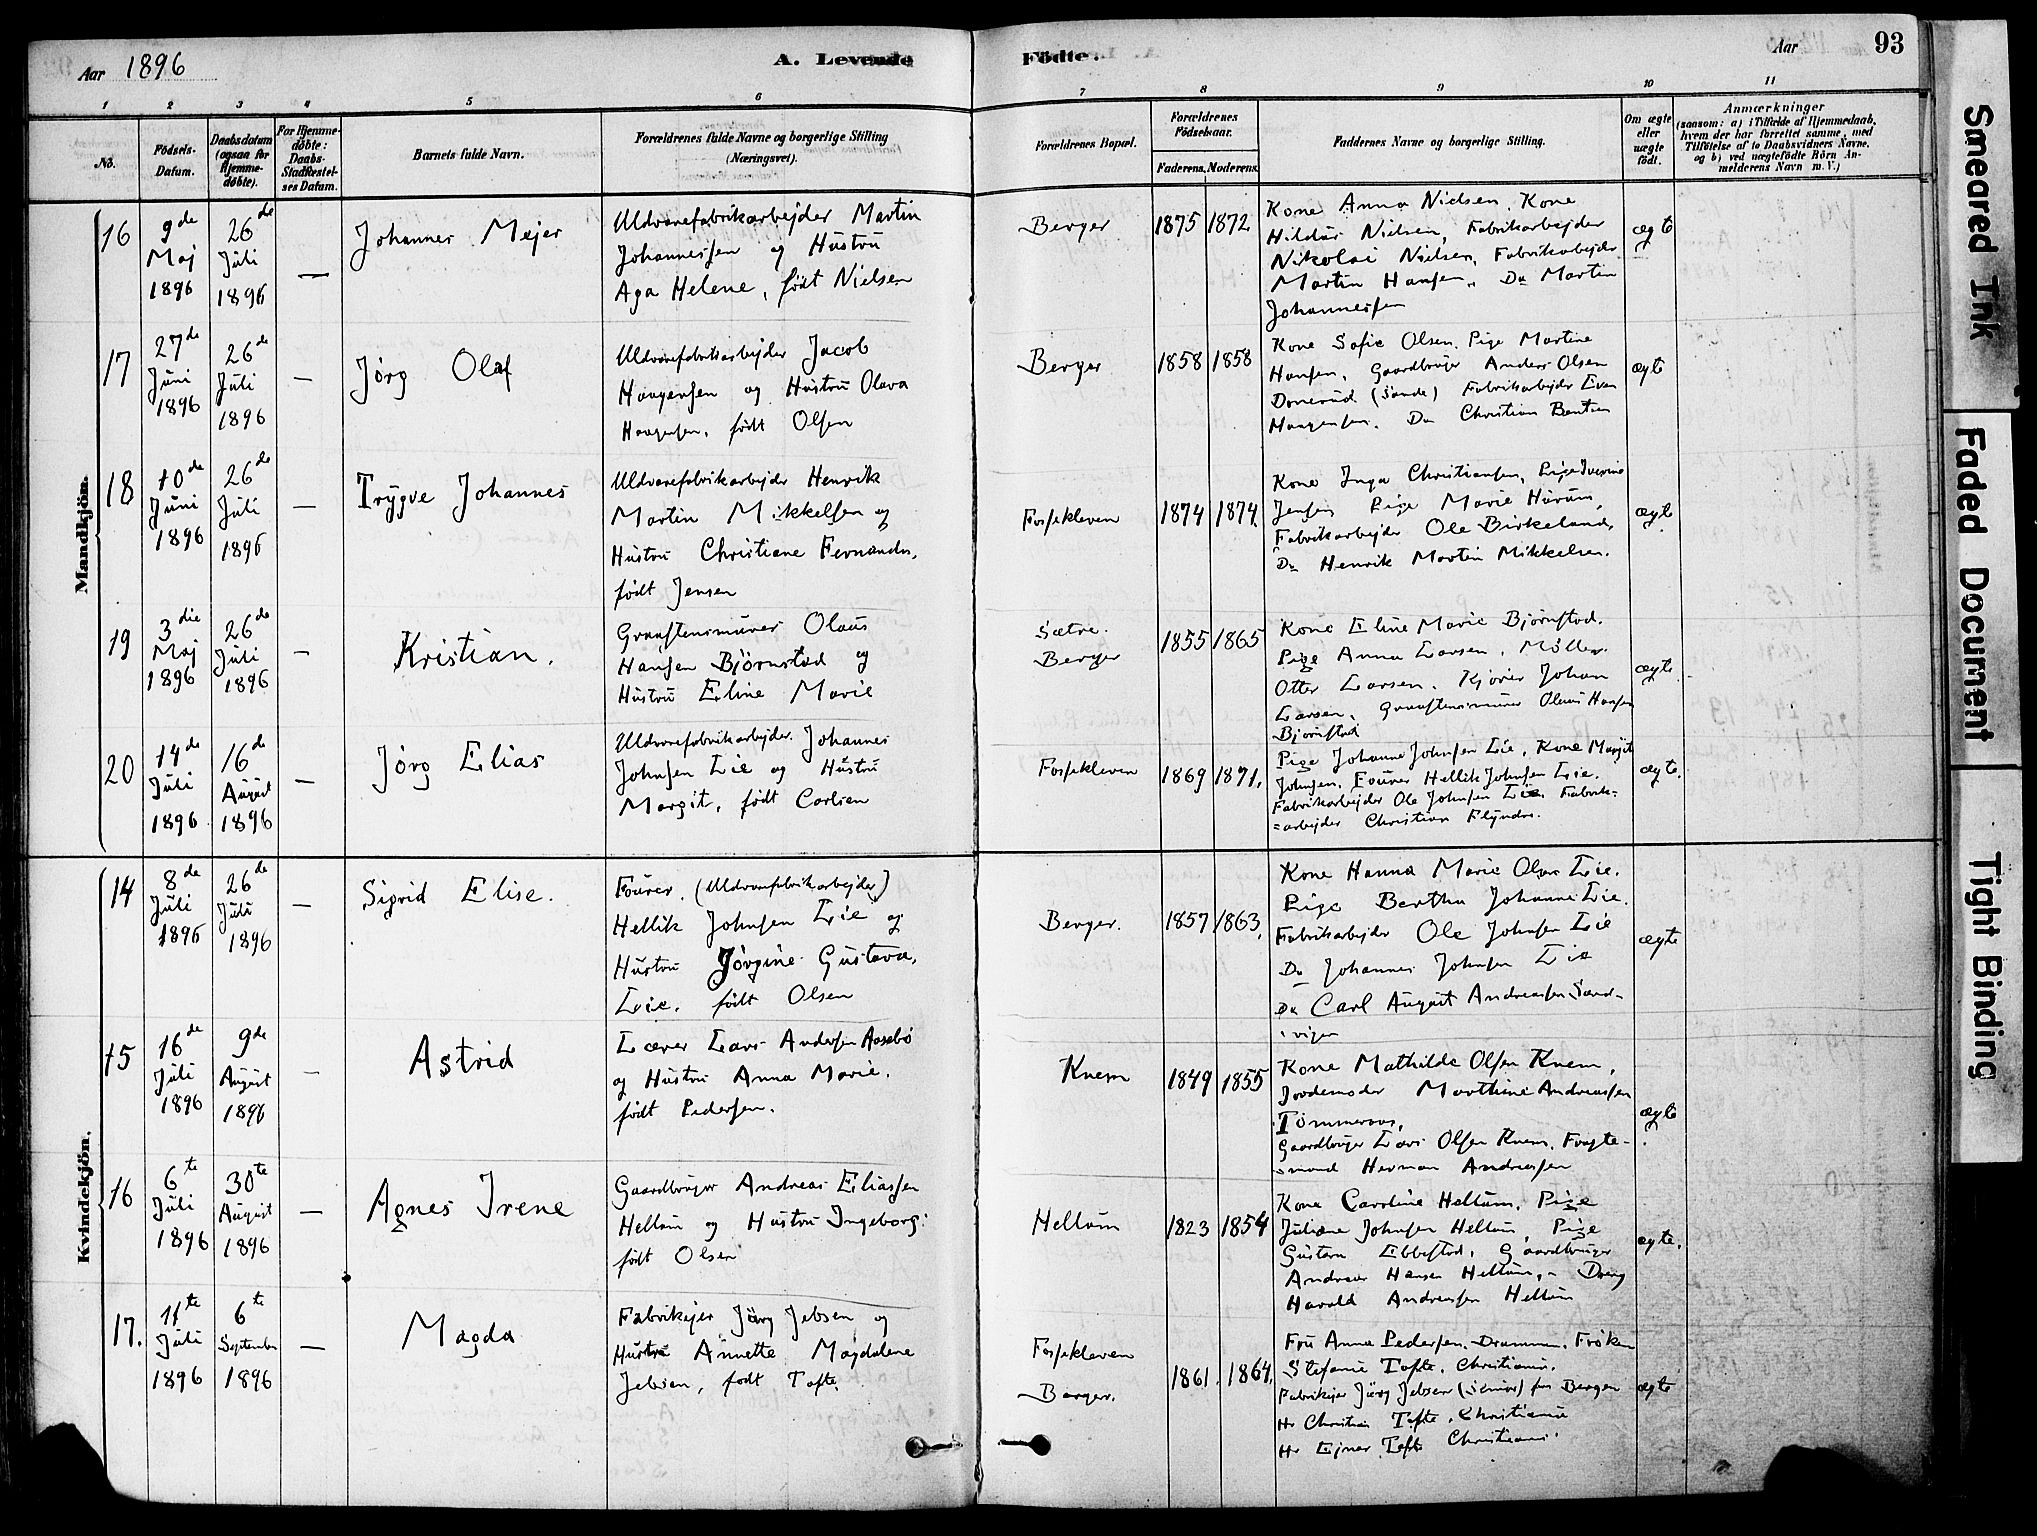 Aar 1896
A. Levende
Fødte.
Aar
93
1 2 3 4 5 6 7 8 9 10 11
No.
Fødsels-
Datum.
Daabsdatum
(ogsaa for
Hjemme-
døbte).
For Hjemme-
døbte:
Daabs-
Stadfæstel-
ses Datum.
Barnets fulde Navn.
Forældrenes fulde Navne og borgerlige Stilling
(Næringsvei).
Forældrenes Bopæl.
Forældrenes
Fødselsaar.
Faderens. Moderens.
Faddernes Navne og borgerlige Stilling.
Om ægte
eller
uægte
født.
Anmærkninger
(saasom: a) i Tilfælde af Hjemmedaab,
hvem der har forrettet samme, med
Tilføielse af to Daabsvidners Navne,
og b) ved uægtefødte Børn An-
melderens Navn m. V.)
Mandkjøn.
16
9de
Maj
1896
26de
Juli
1896
—
Johannes Mejer
Uldvarefabrikarbejder Martin
Johannessen og Hustru
Aga Helene, født Nielsen
Berger
1875 1872
Kone Anna Nielsen, Kone
Hildur Nielsen, Fabrikarbejder
Nikolai Nielsen, Fabrikarbejder
Martin Hansen, Do Martin
Johannessen
ægte
17
27de
Juni
1896
26de
Juli
1896
—
Jørg Olaf
Uldvarefabrikarbejder Jacob
Haagensen og Hustru Olava
Haagensen, født Olsen
Berger
1858 1858
Kone Sofie Olsen, Pige Martine
Hansen, Gaardbruger Anders Olsen
(Sande) Fabrikarbejder Even
Haagensen. Do Christian Bentsen
ægte
18
10de
Juni
1896
26de
Juli
1896
—
Trygve Johannes
Uldvarefabrikarbejder Henrik
Martin Mikkelsen og
Hustru Christiane Fernanda,
født Jensen
Fossekleven
1874 1874.
Kone Inga Christiansen, Pige
Jensen, Pige Marie Hurum,
Fabrikarbejder Ole Birkeland,
Do Henrik Martin Mikkelsen.
ægte
19
3die
Maj
1896
26de
Juli
1896
—
Kristian.
Graastensmurer Olaus
Hansen Bjørnstad og
Hustru Eline Marie
Sætre.
Berger
1855 1865
Kone Eline Marie Bjørnstad.
Pige Anna Larsen, Møller
Otter Larsen. Kjører Johan
Larsen, Graastensmurer Olaus Hansen
Bjørnstad
ægte
20
14de
Juli
1896
16de
August
1896
—
Jørg Elias
Uldvarefabrikarbejder Johannes
Johnsen Lie og Hustru
Margit, født Carlsen
Fossekleven
1869 1871.
Pige Johanne Johnsen Lie, Kone Margit
Johnsen, Fourer Hellik Johnsen Lie.
Fabrikarbejder Ole Johnsen Lie, Fabrik-
=arbejder Christian Flyndre.
ægte.
Kvindekjøn.
14
8de
Juli
1896
26de
Juli
1896
—
Sigrid Elise.
Fourer (Uldvarefabrikarbejder)
Hellik Johnsen Lie og
Hustru Jørgine Gustava,
Lie. født Olsen
Berger.
1857 1863.
Kone Hanna Marie Olsen Lie.
Pige Bertha Johanne Lie.
Fabrikarbejder Ole Johnsen Lie
Do Johannes Johnsen Lie
Do Carl August Andreassen Sand-
vigen
ægte
15
16de
Juli
1896
9de
August
1896
—
Astrid
Lærer Lars Andersen Aasebø
og Hustru Anna Marie.
født Pedersen.
Knem
1849 1855
Kone Mathilde Olsen Knem,
Jordemoder Marthine Andreassen
Tømmeraas,
Gaardbruger Lars Olsen Knem, Fragte-
mand Herman Andreassen
ægte
16
6te
Juli
1896
30te
August
1896
—
Agnes Irene
Gaardbruger Andreas Eliassen
Hellum og Hustru Ingeborg.
født Olsen
Hellum
1823 1854
Kone Caroline Hellum, Pige
Juliane Johnsen Hellum, Pige
Gustava Ebbestad, Gaardbruger
Andreas Hansen Hellum, Dreng
Harald Andreassen Hellum
ægte.
17.
11te
Juli
1896
6te
September
1896
—
Magda
Fabrikejer Jürg Jebsen og
Hustru Annette Magdalene
Jebsen, født Tofte.
Fossekleven
Berger.
1861. 1864.
Fru Anna Pedersen, Drammen, Frøken
Stefanie Tofte, Christiania.
Fabrikejer Jürg Jebsen (Senior) fra Bergen
Hr Christian Tofte, Christiania
Hr Ejnar Tofte Christiania.
ægte
Smeared Ink
Faded Document
Tight Binding